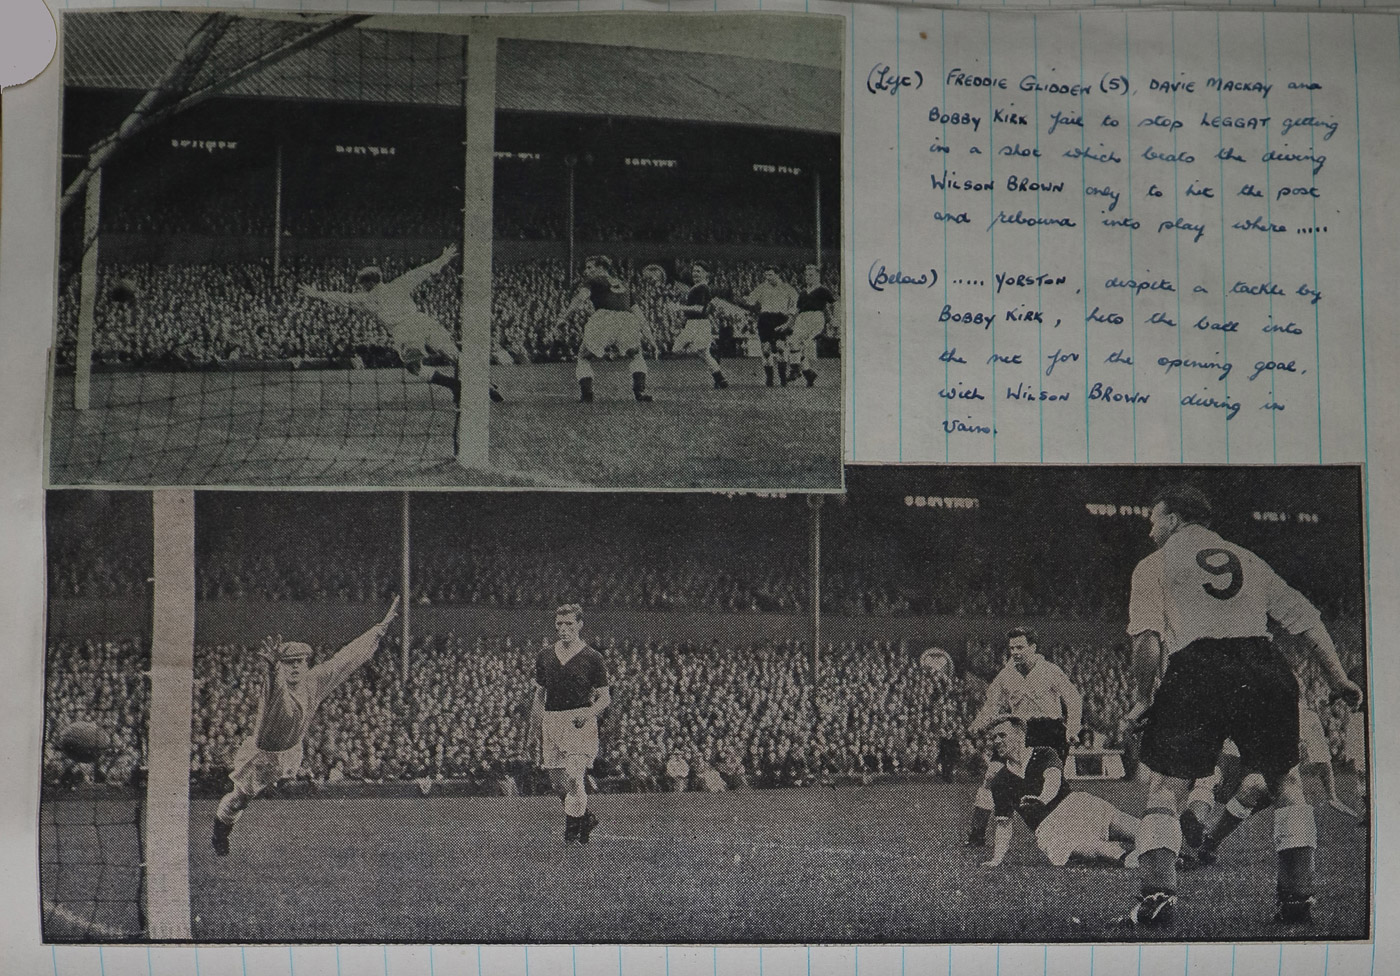 (Left) FREDDIE GLIDDEN (5), DAVIE MACKAY and
BOBBY KIRK fail to stop LEGGAT getting
in a shot which beats the diving
WILSON BROWN only to hit the post
and rebound into play where .....
(Below) ..... YORSTON, despite a tackle by
BOBBY KIRK, hits the ball into
the net for the opening goal,
with WILSON BROWN diving in
vain.
9